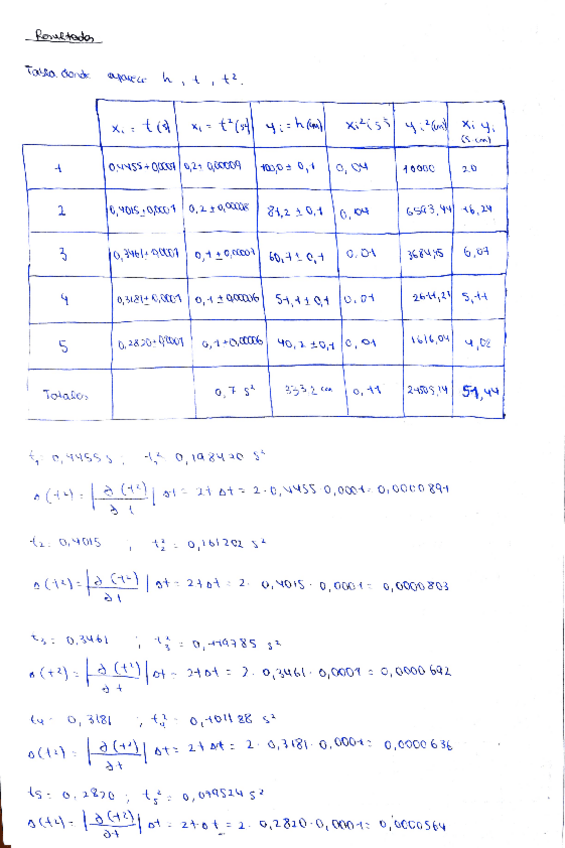 Resultados
Tabla donde aparece h, t, t².
xᵢ = t (s) xᵢ = t² (s²) yᵢ = h (cm) xᵢ² (s⁴) yᵢ² (cm²) xᵢ yᵢ (s·cm)
1 0,4455±0,0001 0,2± 0,00009 100,0 ± 0,1 0,04 10000 20
2 0,4015±0,0001 0,2 ± 0,00008 81,2 ± 0,1 0,04 6593,44 16,24
3 0,3461±0,0001 0,1 ± 0,00007 60,7 ± 0,1 0,01 3684,15 6,07
4 0,3181± 0,0001 0,1 ± 0,00006 51,1 ± 0,1 0,01 2611,21 5,11
5 0,2820±0,0001 0,1±0,00006 40,2 ±0,1 0,01 1616,04 4,02
Totales 0,7 s² 333,2 cm 0,11 24505,14 51,44
t₁ 0,4455 s ; t₁² 0,198470 s²
Δ(t²) = |∂(t²)/∂t| Δt = 2t Δt = 2·0,4455·0,0001= 0,0000891
t₂: 0,4015 ; t₂² = 0,161202 s²
Δ(t²) = |∂(t²)/∂t| Δt = 2tΔt = 2· 0,4015· 0,0001= 0,0000803
t₃: 0,3461 ; t₃² = 0,119785 s²
Δ(t²) = |∂(t²)/∂t| Δt = 2tΔt = 2· 0,3461·0,0001 = 0,0000692
t₄= 0,3181 ; t₄² = 0,101188 s²
Δ(t²) = |∂(t²)/∂t| Δt = 2tΔt = 2· 0,3181·0,0001= 0,0000636
t₅: 0,2820 ; t₅² = 0,079524 s²
Δ(t²) = |∂(t²)/∂t| Δt = 2tΔt = 2· 0,2820·0,0001= 0,0000564